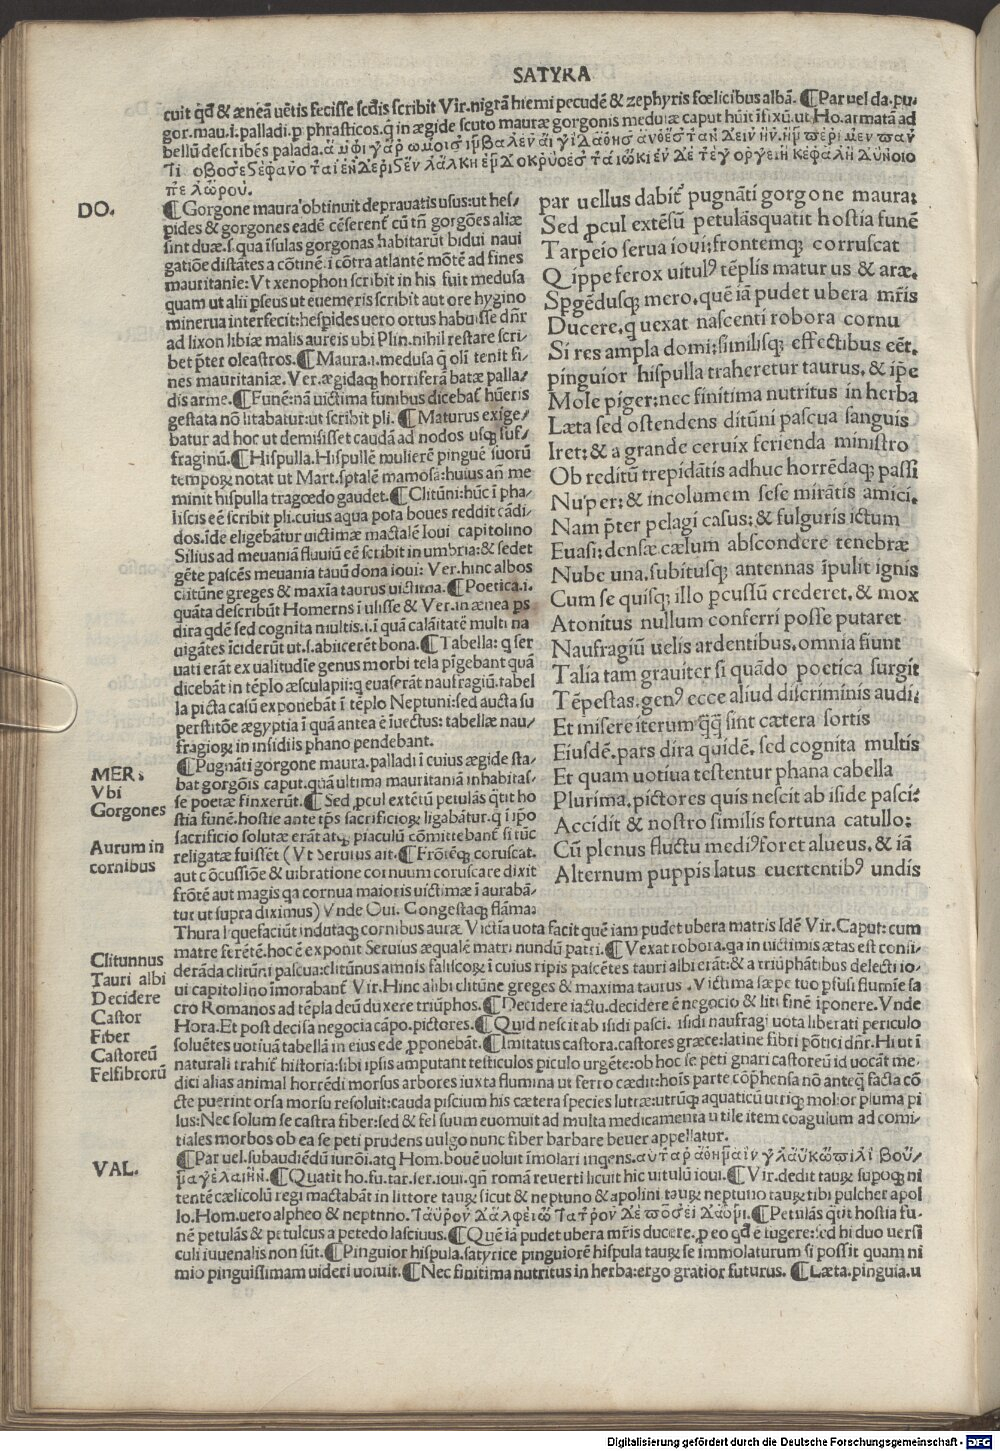 SATYRA
cuit qđ & æneā uētis fecisse scđis scribit Vir. nigrā hiemi pecudē & zephyris fœlicibus albā. ¶Par uel da. pu-
gor. mau. i. palladi. p phrasticos. q in ægide scuto mauræ gorgonis medusæ caput hūit ifixū. ut Ho. armatā ad
bellū describēs palada.
DO.
¶Gorgone maura obtinuit deprauatis usus: ut hes/
pides & gorgones eadē cēserent cū tñ gorgões aliæ
sint duæ. s. qua isulas gorgonas habitarūt bidui naui
gatiōe distātes a cōtinē. i cōtra atlantē mōtē ad fines
mauritanie: Vt xenophon scribit in his fuit medusa
quam ut alii pseus ut euemeris scribit aut ore hygino
minerua interfecit: hespides uero ortus habuisse dñr
ad lixon libiæ malis aureis ubi Plin. nihil restare scri/
bet pter oleastros. ¶Maura. i. medusa q oli tenit fi/
nes mauritaniæ. Ver. ægidaq; horriferā batæ palla/
dis arme. ¶Funē: nā uictima funibus dicebat hūeris
gestata nō litabatur: ut scribit pli. ¶Maturus exige/
batur ad hoc ut demisisset caudā ad nodos usq; suf/
fraginū. ¶Hispulla. Hispullē mulierē pinguē suorū
tempoꝝ notat ut Mart. sptalē mamosā: huius añ me
minit hispulla tragœdo gaudet. ¶Clitūni: hūc i pha/
liscis eē scribit pli. cuius aqua pota boues reddit cādi/
dos. ide eligebātur uictimæ mactalē Ioui capitolino
Silius ad meuaniā fluuiū eē scribit in umbria: & sedet
gēte pascēs meuania tauū dona ioui: Ver. hinc albos
clitūne greges & maxia taurus uictima. ¶Poetica. i.
quāta describūt Homerns i ulisse & Ver. in ænea ps
dira qdē sed cognita multis. i. i quā calāitatē multi na
uigātes iciderūt ut. s. abiicerēt bona. ¶Tabella: q ser
uati erāt ex ualitudie genus morbi tela pigebant quā
dicebāt in tēplo æsculapii: q euaserāt naufragiū. tabel
la picta casū exponebāt i tēplo Neptuni: sed aucta su
perstitōe ægyptia i quā antea ē iuectus: tabellæ nau/
fragioꝝ in insidiis phano pendebant.
MER:
Vbi
Gorgones
Aurum in
cornibus
¶Pugnāti gorgone maura. palladi i cuius ægide sta/
bat gorgōis caput. quā ultima mauritaniā inhabitas/
se poetæ finxerūt. ¶Sed pcul extētū petulās qtit ho
stia funē. hostie ante tps sacrificioꝝ ligabātur. q i ipo
sacrificio solutæ erāt atq; piaculū cōmittebant si tūc
religatæ fuissēt (Vt Seruius ait. ¶Frōtēq; coruscat.
aut cōcussiōe & uibratione cornuum coruscare dixit
frōtē aut magis qa cornua maioris uictimæ i aurabā/
tur ut supra diximus) Vnde Oui. Congestaq; flāma:
par uellus dabit pugnāti gorgone maura:
Sed pcul extēsū petulāsquatit hostia funē
Tarpeio serua ioui: frontemq; corruscat
Quippe ferox uitulꝰ tēplis matur us & aræ.
Spgēdusq; mero. quē iā pudet ubera mr̄is
Ducere. q uexat nascenti robora cornu
Si res ampla domi: similisq; effectibus eēt.
pinguior hispulla traheretur taurus. & ipe
Mole piger: nec finitima nutritus in herba
Læta sed ostendens ditūni pascua sanguis
Iret: & a grande ceruix ferienda ministro
Ob reditū trepidātis adhuc horrēdaq; passi
Nuper: & incolumem sese mirātis amici.
Nam pter pelagi casus: & fulguris ictum
Euasi: densæ cælum abscondere tenebræ
Nube una. subitusq; antennas ipulit ignis
Cum se quisq; illo pcussū crederet. & mox
Atonitus nullum conferri posse putaret
Naufragiū uelis ardentibus. omnia fiunt
Talia tam grauiter si quādo poetica surgit
Tēpestas. genꝰ ecce aliud discriminis audi:
Et misere iterum qq̄ sint cætera sortis
Eiusdē. pars dira quidē. sed cognita multis
Et quam uotiua testentur phana cabella
Plurima. pictores quis nescit ab iside pasci:
Accidit & nostro similis fortuna catullo:
Cū plenus fluctu mediꝰ foret alueus. & iā
Alternum puppis latus euertentibꝰ undis
Thura liquefaciūt indutaq; cornibus auræ Victia uota facit quē iam pudet ubera matris Idē Vir. Caput: cum
matre ferētē. hoc ē exponit Seruius æqualē matri nundū patri. ¶Vexat robora. qa in uictimis ætas est consi-
Clitunnus
Tauri albi
Decidere
Castor
Fiber
Castoreū
Felfibrorū
derāda clitūni pascua: clitūnus amnis faliscoꝝ i cuius ripis pascētes tauri albi erāt: & a triūphātibus delecti io/
ui capitolino imorabant Vir. Hinc alibi clitūne greges & maxima taurus. Victima sæpe tuo pfusi flumie sa
cro Romanos ad tēpla deū duxere triūphos. ¶Decidere iactu. decidere ē negocio & liti finē iponere. Vnde
Hora. Et post decisa negocia cāpo. pictores. ¶Quid nescit ab isidi pasci. isidi naufragi uota liberati periculo
soluētes uotiuā tabellā in eius ede pponebāt. ¶Imitatus castora. castores græce: latine fibri pōtici dñr. Hi ut i
naturali trahit historia: sibi ipsis amputant testiculos piculo urgēte: ob hoc se peti gnari castoreū id uocāt me/
dici alias animal horrēdi morsus arbores iuxta flumina ut ferro cædit: hoīs parte cōphensa nō anteq̄ facta cō
cte puerint orsa morsu resoluit: cauda piscium his cætera species lutræ: utrūq; aquaticū utriq; mollior pluma pi
lus: Nec solum se castra fiber: sed & fel suum euomuit ad multa medicamenta utile item coagulum ad comi/
tiales morbos ob ea se peti prudens uulgo nunc fiber barbare beuer appellatur.
VAL.
¶Par uel. subaudiēdū iunōi. atq Hom. bouē uoluit imolari ingens.
¶Quatit ho. fu. tar. ser. ioui. qñ romā reuerti licuit hic uitulū ioui. ¶Vir. dedit tauꝝ supoꝝ ni
tentē cælicolū regi mactabāt in littore tauꝝ sicut & neptuno & apolini. tauꝝ neptuno tauꝝ tibi pulcher apol
lo. Hom. uero alpheo & neptnno. ¶Petulās qtit hostia fu-
nē petulās & petulcus a petedo lasciuus. ¶Quē iā pudet ubera mr̄is ducere. p eo qđ ē sugere: sed hi duo uersi
culi iuuenalis non sūt. ¶Pinguior hispula. satyrice pinguiorē hispula tauꝝ se immolaturum si possit quam ni
mio pinguissimam uideri uoluit. ¶Nec finitima nutritus in herba: ergo gratior futurus. ¶Læta. pinguia. u
Digitalisierung gefördert durch die Deutsche Forschungsgemeinschaft - DFG